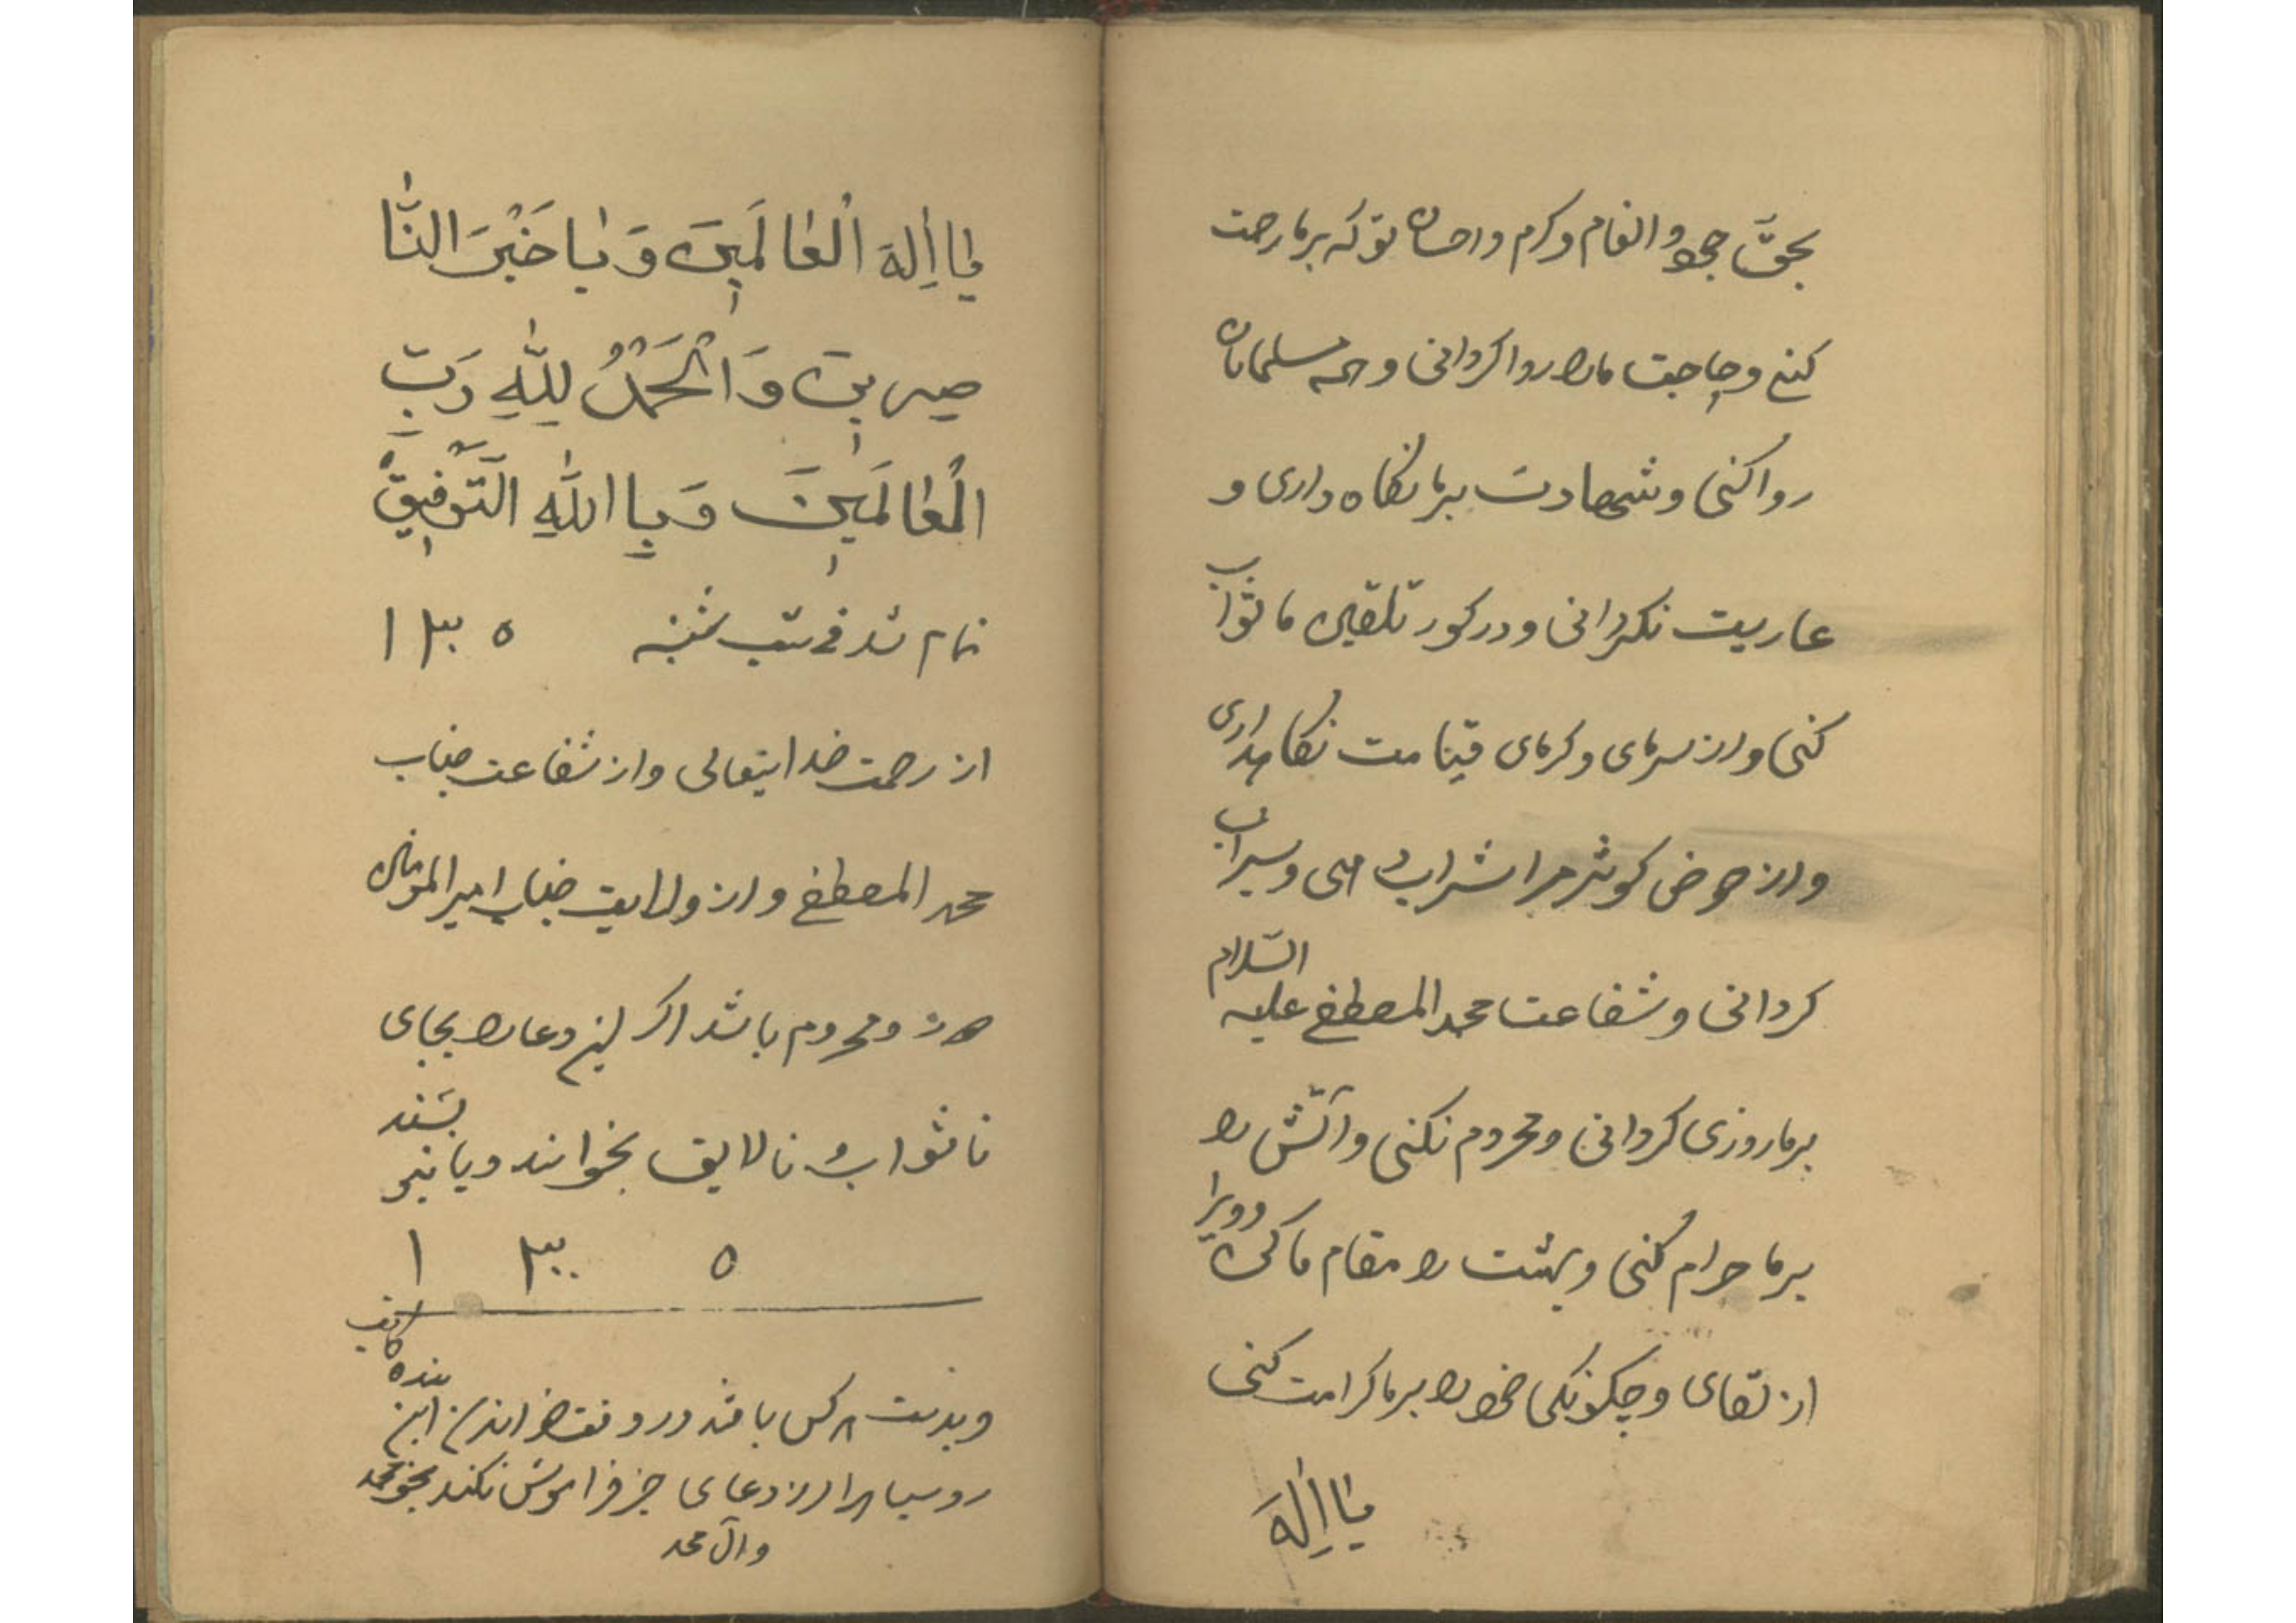 بحقّ جود و انعام و کرم و احسان تو که بر ما رحمت
کنی و حاجت ما را روا گردانی و همه مسلمانان
روا کنی و شهادت بر ما نگاه داری و
عاریت نگردانی و در کور تلقین ما ثواب
کنی و از سرمای و کرمای قیامت نگاهداری
و از حوض کوثر مرا شراب دهی و سیراب
کردانی و شفاعت محمد المصطفی علیه السّلام
بر ما روزی کردانی و محروم نکنی و آتش را
بر ما حرام کنی و بهشت را مقام ما کن و ویرا
از لقای و چکونکی خود را بر ما کرامت کنی
یٰا اِلٰهَ
یٰا اِلٰهَ الْعٰالَمینَ وَ یٰا خَیْرَ النّٰا
صِرینَ وَ الْحَمْدُ لِلّٰهِ رَبِّ
الْعٰالَمینَ وَ بِا اللّٰهِ التَّوْفیقُ
تمام شد فی شب شنبه ۱۳۰۵
از رحمت خدایتعالی و از شفاعت جناب
محمد المصطفی و از ولایت جناب امیر المؤمنان
و محروم باشد اکر این دعا را بجای
نا ثواب نا لایق بخوانند و یا بنویسند
۱۳۰۵
کاتب
هر کس باشد در این بنده
رو سیاه را از دعای خیر فراموش نکند بحق محمد
و آل محمد